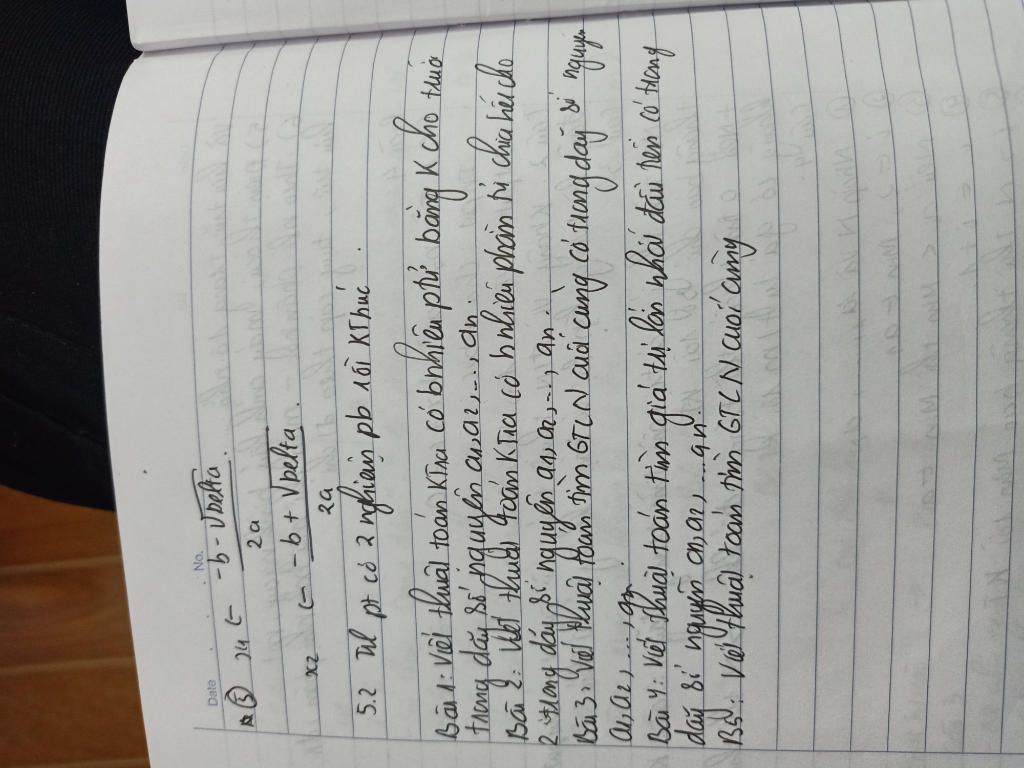 Date No.
⑤ x1 ← -b - √Delta
2a
x2 ← -b + √Delta
2a
5.2 TL pt có 2 nghiệm pb rồi KThúc.
Bài 1: Viết thuật toán KTra có bnhiêu ptử bằng K cho trước
trong dãy số nguyên a1, a2, ... an.
Bài 2: Viết thuật toán KTra có bnhiêu phần tử chia hết cho
2 trong dãy số nguyên a1, a2, ..., an.
Bài 3: Viết thuật toán tìm GTCN cuối cùng có trong dãy số nguyên
a1, a2, ..., an
Bài 4: Viết thuật toán tìm giá trị lớn nhất đầu tiên có trong
dãy số nguyên a1, a2, ... an
Bài: Viết thuật toán tìm GTCN cuối cùng